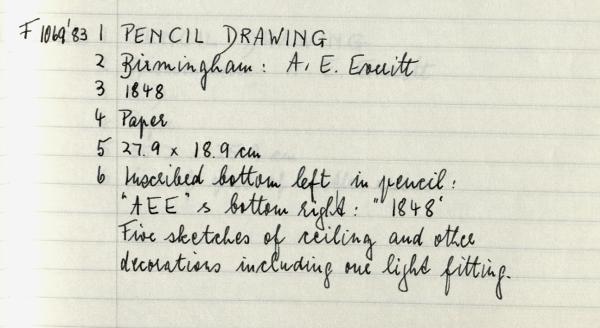 F 1069'83 1 PENCIL DRAWING
2 Birmingham: A. E. Everitt
3 1848
4 Paper
5 27.9 x 18.9 cm
6 Inscribed bottom left, in pencil:
"AEE" & bottom right: "1848"
Five sketches of ceiling and other
decorations including one light fitting.